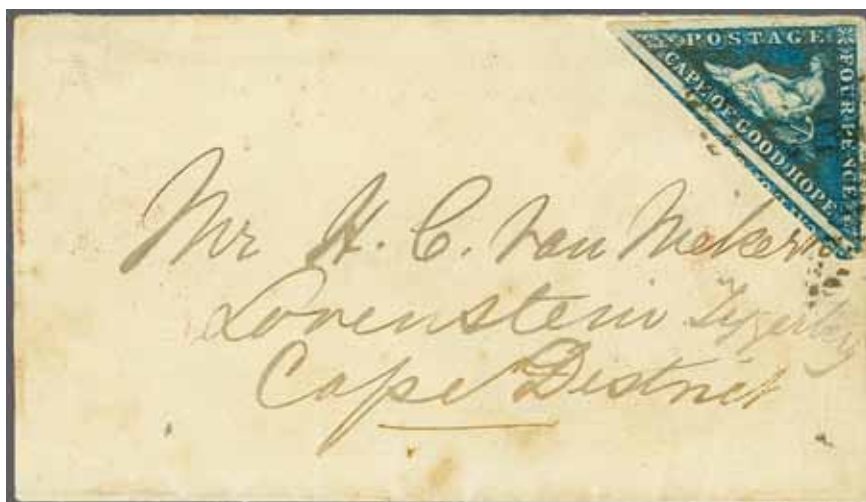 POSTAGE
FOURPENCE
CAPE OF GOOD HOPE
Mr H. C. Van Niekerk
Lovenstein Tygerberg
Cape District